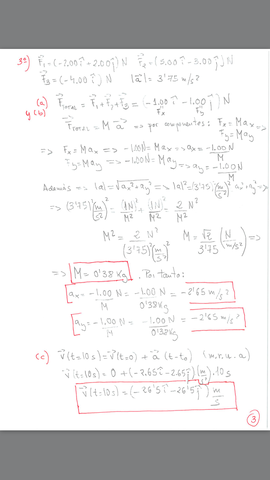 31) F⃗₁ = (-2.00 î + 2.00 ĵ) N F⃗₂ = (5.00 î - 3.00 ĵ) N
F⃗₃ = (-4.00 î) N |a⃗| = 3'75 m/s²
(a) F⃗TOTAL = F⃗₁ + F⃗₂ + F⃗₃ = (-1.00 î - 1.00 ĵ) N
Fx Fy
y (b) F⃗TOTAL = M a⃗ => por componentes: Fx = Max =>
Fy = May
=> Fx = Max => -1.00N = Max => ax = -1.00N/M
Fy = May => -1.00N = May => ay = -1.00N/M
Además => |a| = √(ax² + ay²) => |a|² = (3'75)² (m/s²)² = ax² + ay² =>
=> (3'75)² (m/s²)² = (1N)²/M² + (1N)²/M² = 2/M² N²
M² = 2/(3'75)² N²/(m/s²)² M = √2/3'75 (N/(m/s²)) =>
=> M = 0'38 Kg. Por tanto:
ax = -1.00 N/M = -1.00 N/0'38 Kg = -2'65 m/s²
ay = -1.00 N/M = -1.00 N/0'38 Kg = -2'65 m/s²
(c) v⃗(t=10s) = v⃗(t=0) + a⃗ (t-t₀) (m.r.u.a)
v⃗(t=10s) = 0 + (-2.65 î - 2.65 ĵ) (m/s²) · 10s
v⃗(t=10s) = (-26'5 î - 26'5 ĵ) m/s
3